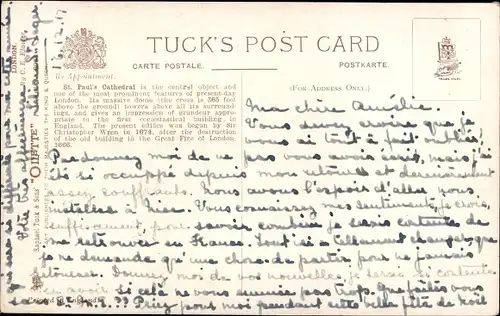 TUCK'S POST CARD
CARTE POSTALE.
POSTKARTE.
By Appointment.
(FOR ADDRESS ONLY.)
St. Paul's Cathedral is the central object and
one of the most prominent features of present-day
London. Its massive dome (the cross is 365 feet
above the ground) towers above all its surround-
ings, and gives an impression of grandeur appro-
priate to the first ecclesiastical building in
England. The present edifice was begun by Sir
Christopher Wren in 1674, after the destruction
of the old building in the Great Fire of London,
1666.
Ma chère Amélie.
Vous devez croire que je
vous ai tout à fait oubliée,
Pardonnez moi de ne pas vous avoir écrit, mais j'ai
été si occupée depuis mon retour et dernièrement
assez souffrante. Nous avons l'espoir d'aller nous
installer à Nice. Vous connaissez mes sentiments, je crois,
suffisamment pour savoir combien je serais contente de
me retrouver en France. Tout ici a tellement changé, que
je ne demande qu'une chose: de partir pour ne jamais
retourner. Donnez moi de vos nouvelles, je serai si contente
en avoir Si cela ne vous ennuie pas trop. Que faites vous
Priez pour moi pendant cette belle fête de Noël
Votre très affectionnée
16.12.17
Raphael Tuck & Sons' "OILETTE"
ART PUBLISHERS TO THEIR MAJESTIES THE KING & QUEEN
LONDON.